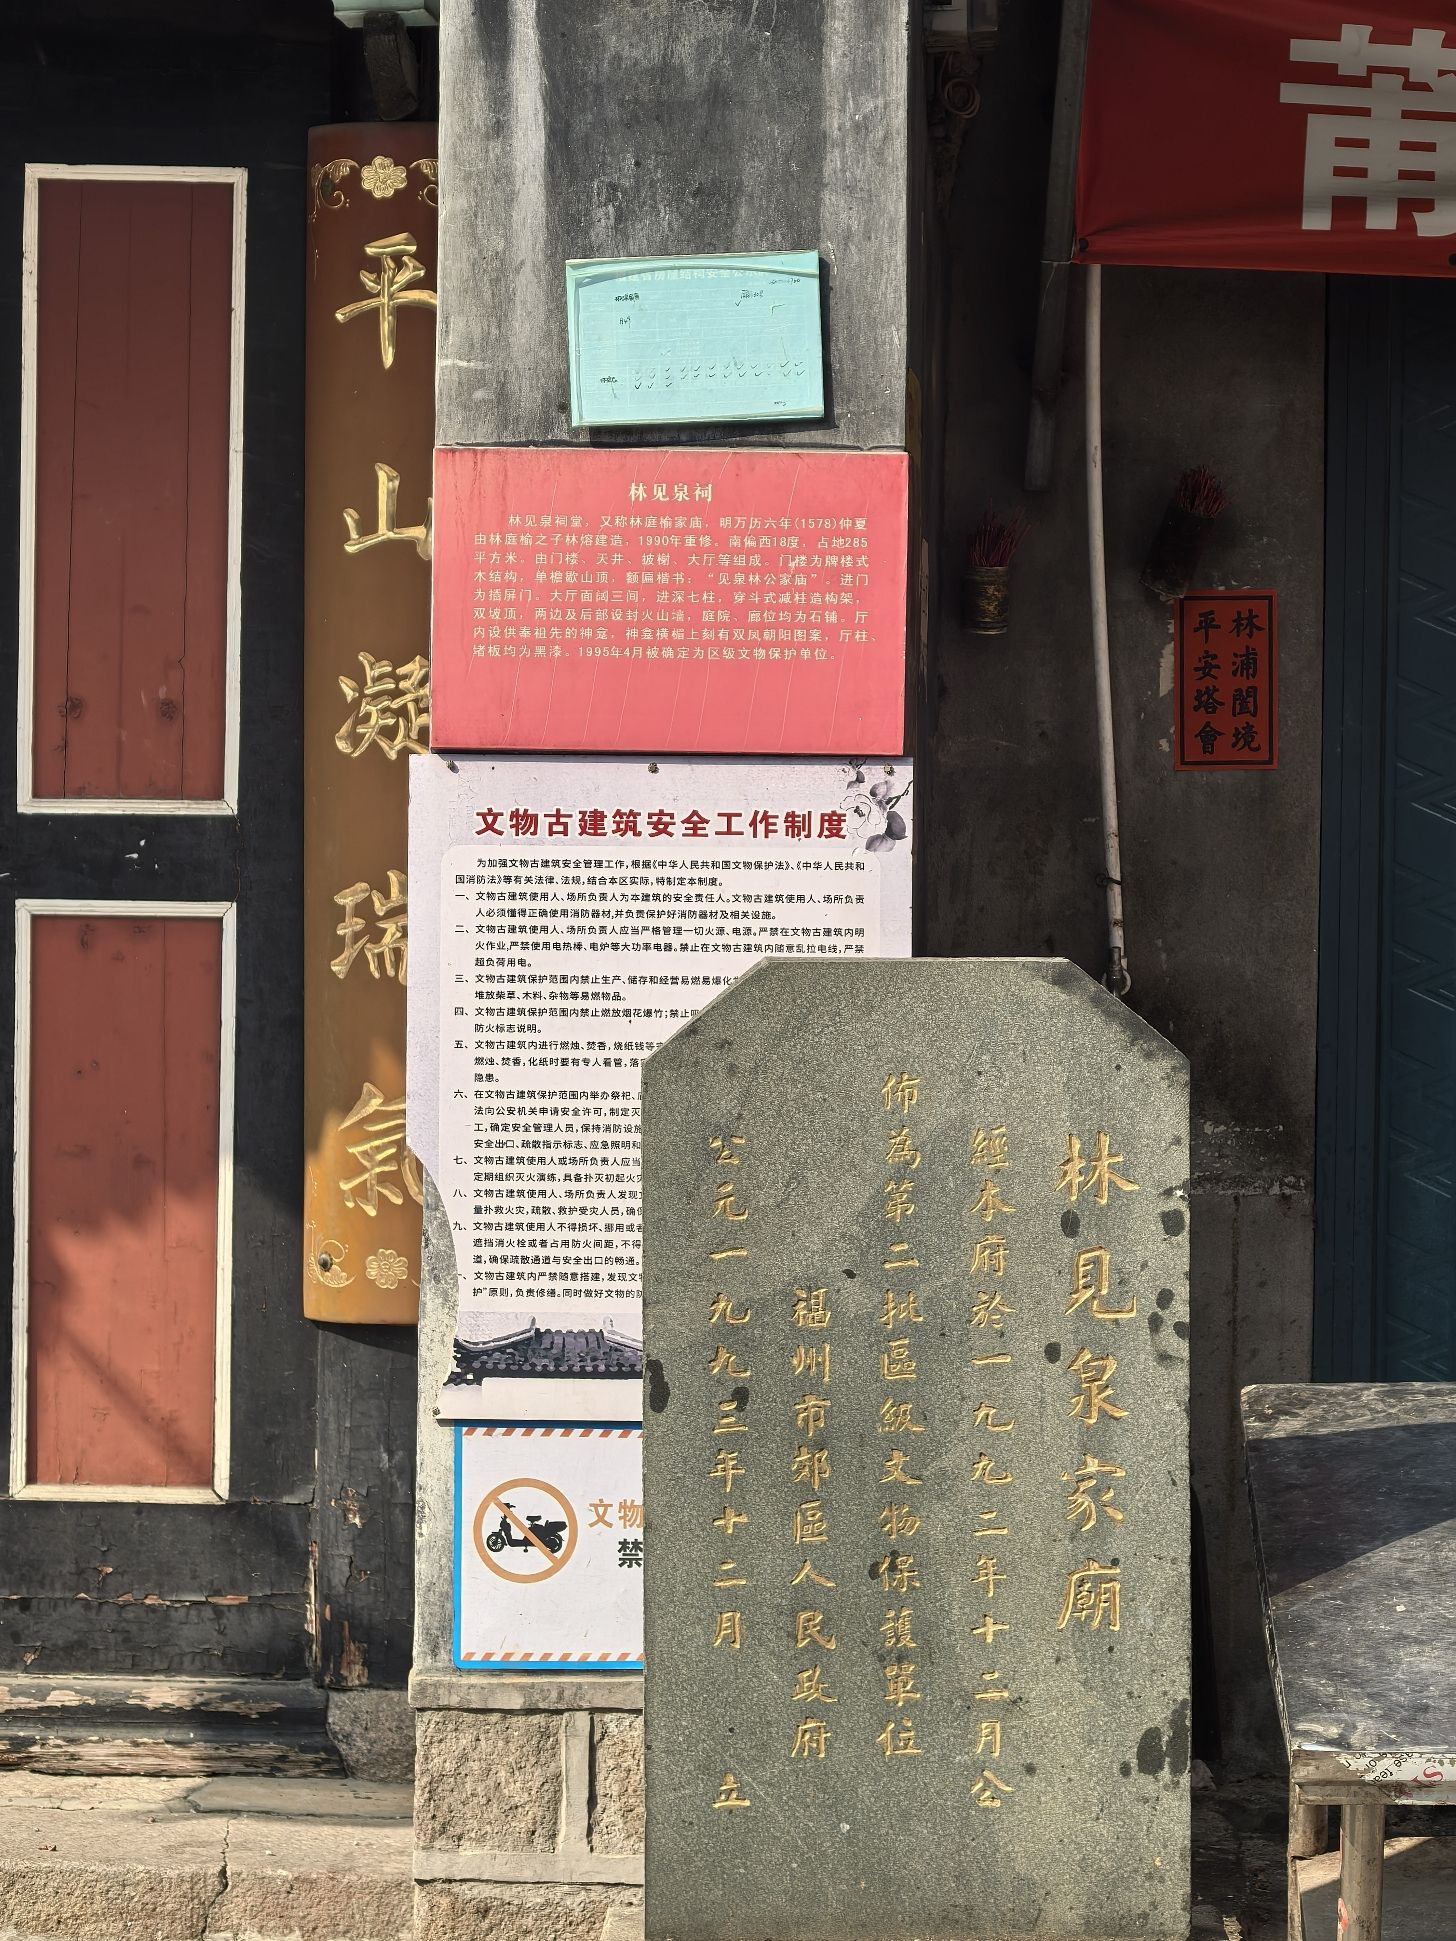 平山凝瑞氣
林见泉祠
林见泉祠堂，又称林庭榆家庙，明万历六年(1578)仲夏
由林庭榆之子林熔建造，1990年重修。南偏西18度，占地285
平方米。由门楼、天井、披榭、大厅等组成。门楼为牌楼式
木结构，单檐歇山顶，额匾楷书：“见泉林公家庙”。进门
为插屏门。大厅面阔三间，进深七柱，穿斗式减柱造构架，
双坡顶，两边及后部设封火山墙，庭院、廊位均为石铺。厅
内设供奉祖先的神龛，神龛横楣上刻有双凤朝阳图案，厅柱、
堵板均为黑漆。1995年4月被确定为区级文物保护单位。
文物古建筑安全工作制度
为加强文物古建筑安全管理工作，根据《中华人民共和国文物保护法》、《中华人民共和
国消防法》等有关法律、法规，结合本区实际，特制定本制度。
一、文物古建筑使用人、场所负责人为本建筑的安全责任人。文物古建筑使用人、场所负责
人必须懂得正确使用消防器材，并负责保护好消防器材及相关设施。
二、文物古建筑使用人、场所负责人应当严格管理一切火源、电源。严禁在文物古建筑内明
火作业，严禁使用电热棒、电炉等大功率电器。禁止在文物古建筑内随意乱拉电线，严禁
超负荷用电。
三、文物古建筑保护范围内禁止生产、储存和经营易燃易爆化
堆放柴草、木料、杂物等易燃物品。
四、文物古建筑保护范围内禁止燃放烟花爆竹；禁止
防火标志说明。
五、文物古建筑内进行燃烛、焚香，烧纸钱等
燃烛、焚香，化纸时要有专人看管，落
隐患。
六、在文物古建筑保护范围内举办祭祀、
法向公安机关申请安全许可，制定灭
工，确定安全管理人员，保持消防设施
安全出口、疏散指示标志、应急照明和
七、文物古建筑使用人或场所负责人应当
定期组织灭火演练，具备扑灭初起火
八、文物古建筑使用人、场所负责人发现
量扑救火灾，疏散、救护受灾人员，确
九、文物古建筑使用人不得损坏、挪用或
遮挡消火栓或者占用防火间距，不得
道，确保疏散通道与安全出口的畅通。
文物古建筑内严禁随意搭建，发现文
护”原则，负责修缮。同时做好文物的
文物
禁
林見泉家廟
經本府於一九九二年十二月公
佈為第二批區級文物保護單位
福州市郊區人民政府
公元一九九三年十二月 立
林浦閩境
平安塔會
莆